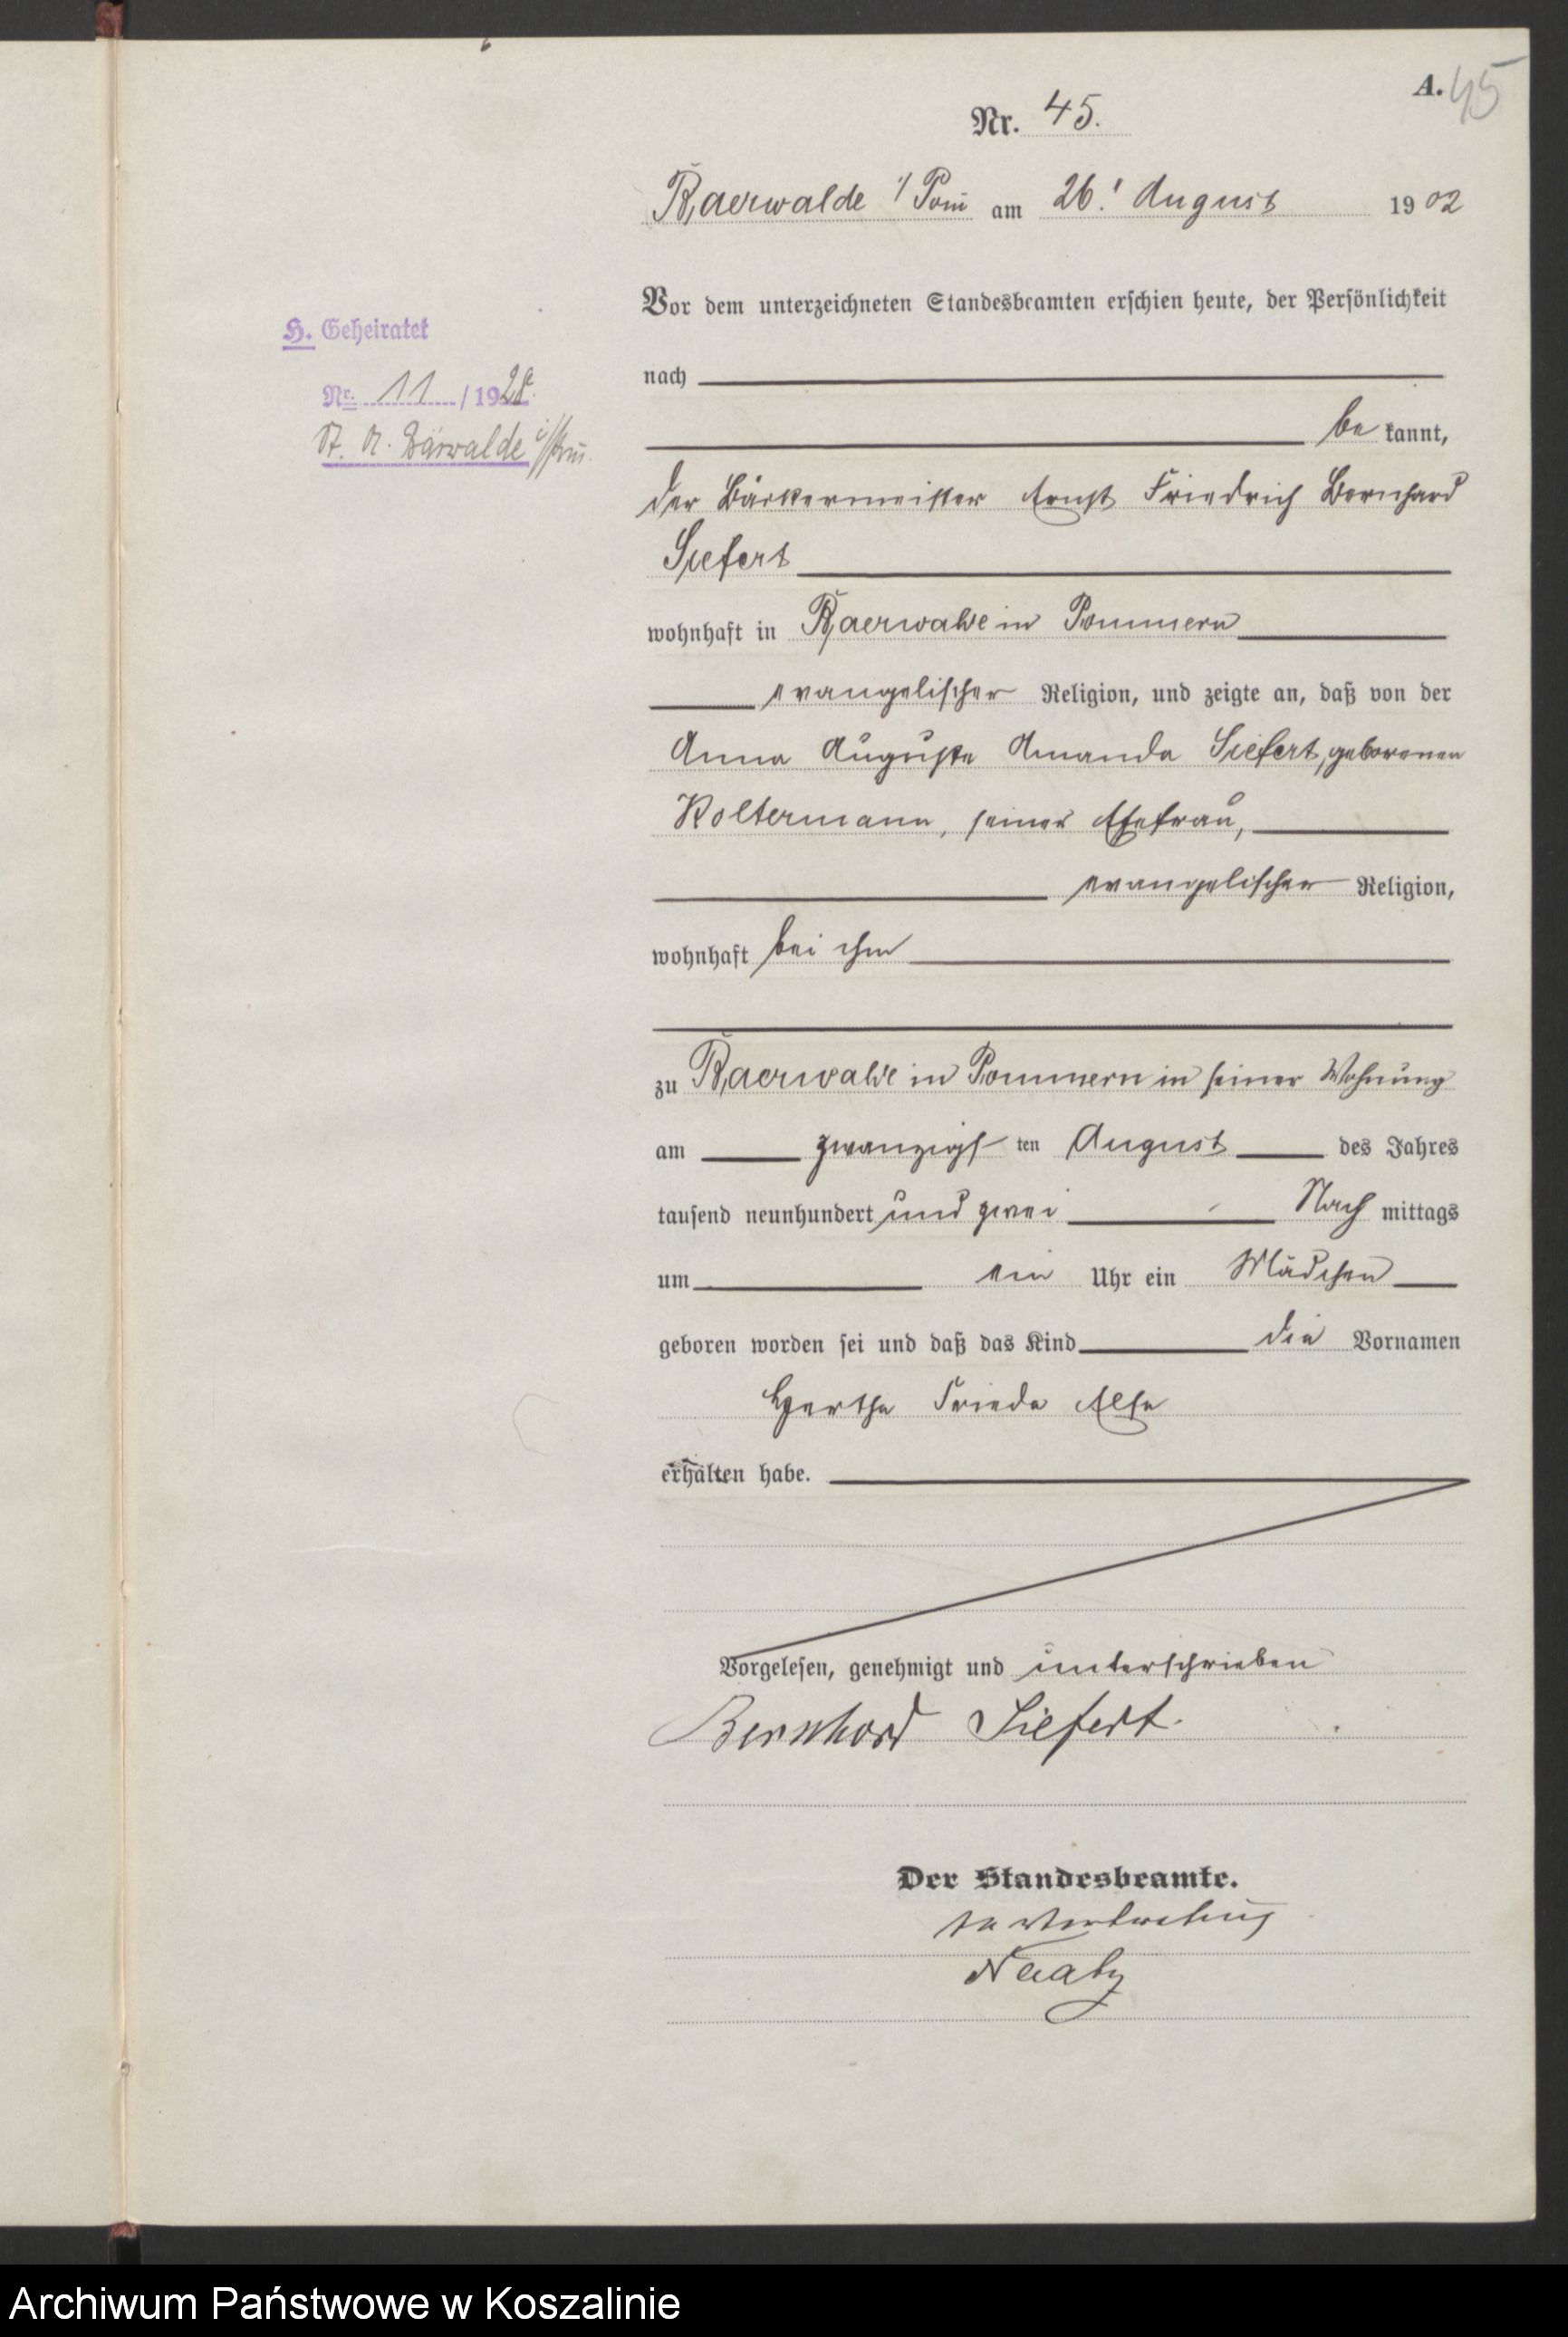 A. 45
Nr. 45.
Baerwalde i/Pom am 26. August 1902
Vor dem unterzeichneten Standesbeamten erschien heute, der Persönlichkeit
nach
be kannt,
der Bäckermeister Ernst Friedrich Bernhard
Siefert
wohnhaft in Baerwalde in Pommern
evangelischer Religion, und zeigte an, daß von der
Anna Auguste Amanda Siefert, geborenen
Koltermann, seiner Ehefrau,
evangelischer Religion,
wohnhaft bei ihm
zu Baerwalde in Pommern in seiner Wohnung
am zwanzigsten August des Jahres
tausend neunhundert und zwei Nach mittags
um ein Uhr ein Mädchen
geboren worden sei und daß das Kind die Vornamen
Hertha Frieda Else
erhalten habe.
Vorgelesen, genehmigt und unterschrieben
Bernhard Siefert.
Der Standesbeamte.
In Vertretung
H. Geheiratet
Nr. 11 / 1928.
St. A. Bärwalde i/Pom.
Archiwum Państwowe w Koszalinie